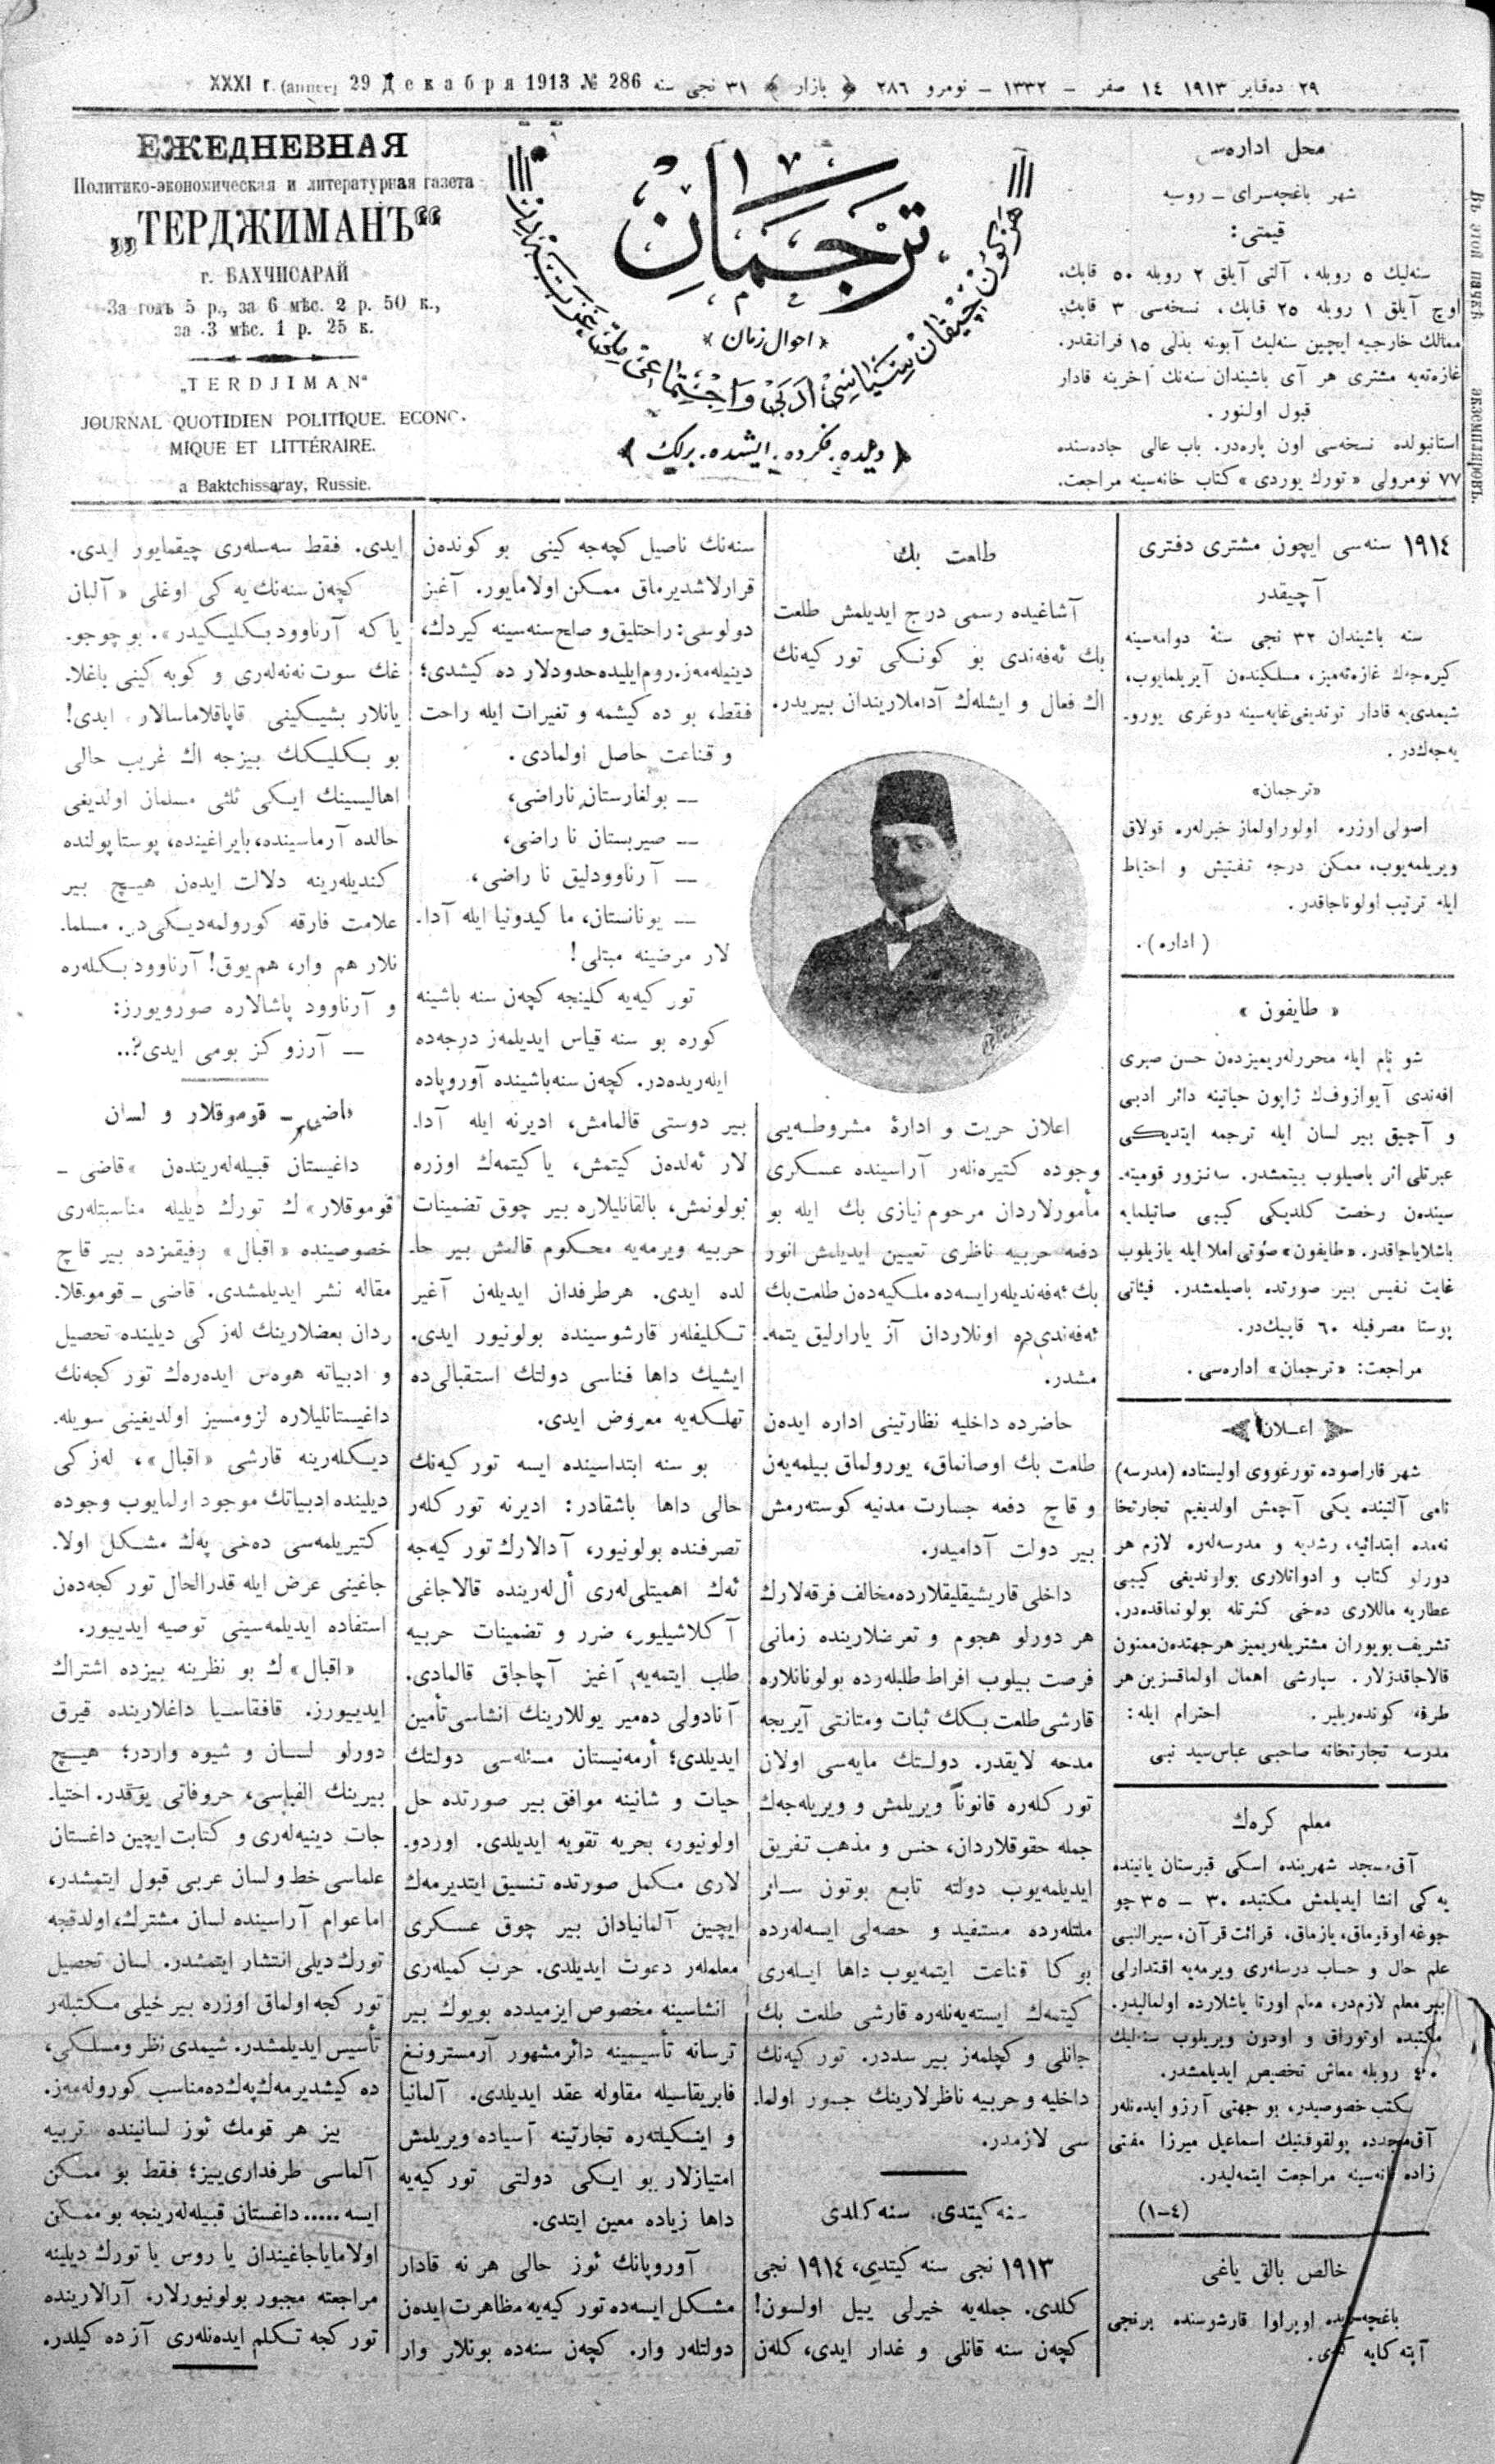 ٢٩ ده‌قابر ١٩١٣ ١٤ صفر – ١٣٣٢ – نومرو ٢٨٦ ﴿ بازار ﴾ ٣١ نجی سنه 29 Декабря 1913 № 286 XXXI г. (annee)
ЕЖЕДНЕВНАЯ
Политико-экономическая и литературная газета
„ТЕРДЖИМАНЪ“
г. БАХЧИСАРАЙ
За годъ 5 р., за 6 мѣс. 2 р. 50 к.,
за 3 мѣс. 1 р. 25 к.
„TERDJIMAN“
JOURNAL QUOTIDIEN POLITIQUE. ECONO-
MIQUE ET LITTÉRAIRE.
a Baktchissaray, Russie.
ترجمان
احوال زمان
هر كون چیقان سیاسی ادبی و اجتماعی ملی غزته‌در
﴿ دیلده، فكرده، ایشده، برلك ﴾
محل اداره‌سی
شهر باغچه‌سرای – روسیه
قیمتی:
سنه‌لیك ٥ روبله، آلتی آیلق ٢ روبله ٥٠ قاپك،
اوچ آیلق ١ روبله ٢٥ قاپك، نسخه‌سی ٣ قاپك.
ممالك خارجیه ایچین سنه‌لیك آبونه بدلی ١٥ فرانقدر.
غازه‌ته‌یه مشتری هر آی باشیندان سنه‌نك آخرینه قادار
قبول اولنور.
استانبولده نسخه‌سی اون پاره‌در. باب عالی جاده‌سنده
٧٧ نومرولی «تورك یوردی» كتاب خانه‌سینه مراجعت.
Въ этой пачкѣ экземпляровъ.
١٩١٤ سنه‌سی ایچون مشتری دفتری
آچیقدر
سنه باشیندان ٣٢ نجی سنهٔ دوامه‌سینه
كیره‌جه‌ك غازه‌ته‌میز، مسلكیندن آیریلمایوب،
شیمدی‌یه قادار توتدیغی غایه‌سینه دوغری یورو-
یه‌جه‌كدر.
«ترجمان»
اصولی اوزره اولور اولماز خبرلره قولاق
ویریلمه‌یوب، ممكن درجه تفتیش و احتیاط
ایله ترتیب اولوناجاقدر.
(اداره).
« طایفون »
شو نام ایله محررلریمیزدن حسن صبری
افه‌ندی آیوازوف‌ك ژاپون حیاتینه دائر ادبی
و آچیق بیر لسان ایله ترجمه ایتدیكی
عبرتلی اثر باصیلوب بیتمشدر. سه‌نزور قومیته-
سیندن رخصت كلدیكی كیبی صاتیلمایه
باشلایاجاقدر. «طایفون» صوتی املا ایله یازیلوب
غایت نفیس بیر صورتده باصیلمشدر. فیئاتی
پوستا مصرفیله ٦٠ قاپیك‌در.
مراجعت: «ترجمان» اداره‌سی.
اعلان
شهر قاراصوده تورغووی اولیستاده (مدرسه)
نامی آلتینده یكی آچمش اولدیغیم تجارتخا
نه‌مده ابتدائیه، رشدیه و مدرسه‌لره لازم هر
دورلو كتاب و ادواتلاری بولوندیغی كیبی
عطاریه ماللاری ده‌خی كثرتله بولونماقده‌در.
تشریف بویوران مشتریلریمیز هر جهتدن ممنون
قالاجاقدرلار. سپارشی اهمال اولماقسزین هر
طرفه كونده‌ریلیر. احترام ایله:
مدرسه تجارتخانه صاحبی عباس سید نبی
معلم كره‌ك
آق‌مسجد شهرینده اسكی قبرستان یانینده
یه‌كی انشا ایدیلمش مكتبده ٣٠ – ٣٥ چو
جوغه اوقوماق، یازماق، قرائت قرآن، سیر النبی
علم حال و حساب درسلری ویرمه‌یه اقتدارلی
بیر معلم لازم‌در، معلم اورتا یاشلارده اولمالیدر.
مكتبده اوتوراق و اودون ویریلوب سنه‌لیك
٤٠٠ روبله معاش تخصیص ایدیلمشدر.
مكتب خصوصیدر، بو جهتی آرزو ایده‌نلر
آق‌مسجدده پولقوفنیك اسماعیل میرزا مفتی
زاده خانه‌سینه مراجعت ایتمه‌لیدر.
(٤–١)
خالص بالق یاغی
باغچه‌سرایده اوپراوا قارشوسنده برنجی
آپته‌كایه كلدی.
طلعت بك
آشاغیده رسمی درج ایدیلمش طلعت
بك ئه‌فه‌ندی بو كونكی توركیه‌نك
اك فعال و ایشله‌ك آداملاریندان بیریدر.
اعلان حریت و ادارهٔ مشروطه‌یی
وجوده كتیره‌نلر آراسینده عسكری
مأمورلاردان مرحوم نیازی بك ایله بو
دفعه حربیه ناظری تعیین ایدیلمش انور
بك ئه‌فه‌ندیلر ایسه‌ده ملكیه‌دن طلعت بك
ئه‌فه‌ندی‌ده اونلاردان آز یارارلیق یتمه-
مشدر.
حاضرده داخلیه نظارتینی اداره ایده‌ن
طلعت بك اوصانماق، یورولماق بیلمه‌یه‌ن
و قاچ دفعه جسارت مدنیه كوسته‌رمش
بیر دولت آدامیدر.
داخلی قاریشیقلیقلارده مخالف فرقه‌لارك
هر دورلو هجوم و تعرضلارینده زمانی
فرصت بیلوب افراط طلبلرده بولونانلاره
قارشی طلعت بكك ثبات و متانتی آیریجه
مدحه لایقدر. دولتك مایه‌سی اولان
توركلره قانوناً ویریلمش و ویریله‌جه‌ك
جمله حقوقلاردان، جنس و مذهب تفریق
ایدیلمه‌یوب دولته تابع بوتون سائر
ملتلرده مستفید و حصه‌لی ایسه‌لرده
بوكا قناعت ایتمه‌یوب داها ایله‌ری
كیتمه‌ك ایسته‌یه‌نلره قارشی طلعت بك
جانلی و كچلمه‌ز بیر سددر. توركیه‌نك
داخلیه و حربیه ناظرلارینك جسور اولما-
سی لازمدر.
سنه كیتدی، سنه كلدی
١٩١٣ نجی سنه كیتدی، ١٩١٤ نجی
كلدی. جمله‌یه خیرلی ییل اولسون!
كچه‌ن سنه قانلی و غدار ایدی، كله‌ن
سنه‌نك ناصیل كچه‌جه‌كینی بو كوندن
قرارلاشدیرماق ممكن اولامایور. آغیز
دولوسی: راحتلیق و صلح سنه‌سینه كیردك،
دینیله‌مه‌ز. روم‌ایلیده حدودلار ده كیشدی؛
فقط، بو ده كیشمه و تغیرات ایله راحت
و قناعت حاصل اولمادی.
— بولغارستان ناراضی،
— صیربستان نا راضی،
— آرناوودلیق نا راضی،
— یونانستان، ماكیدونیا ایله آدا-
لار مرضینه مبتلی!
توركیه‌یه كلینجه كچه‌ن سنه باشینه
كوره بو سنه قیاس ایدیلمه‌ز درجه‌ده
ایله‌ریده‌در. كچه‌ن سنه باشینده آوروپاده
بیر دوستی قالمامش، ادیرنه ایله آدا-
لار ئه‌لدن كیتمش، یا كیتمه‌ك اوزره
بولونمش، بالقانلیلاره بیر چوق تضمینات
حربیه ویرمه‌یه محكوم قالمش بیر حا-
لده ایدی. هر طرفدان ایدیله‌ن آغیر
تكلیفلر قارشوسینده بولونیور ایدی.
ایشیك داها فناسی دولتك استقبالی‌ده
تهلكه‌یه معروض ایدی.
بو سنه ابتداسینده ایسه توركیه‌نك
حالی داها باشقادر: ادیرنه توركلر
تصرفنده بولونیور، آدالارك توركیه‌جه
ئه‌ك اهمیتلی‌لری أل‌لرینده قالاجاغی
آكلاشیلیور، ضرر و تضمینات حربیه
طلب ایتمه‌یه آغیز آچاجاق قالمادی.
آنادولی ده‌میر یوللارینك انشاسی تأمین
ایدیلدی؛ أرمه‌نیستان مسئله‌سی دولتك
حیات و شانینه موافق بیر صورتده حل
اولونیور، بحریه تقویه ایدیلدی. اوردو-
لاری مكمل صورتده تنسیق ایتدیرمه‌ك
ایچین آلمانیادان بیر چوق عسكری
معلملر دعوت ایدیلدی. حرب كمیلری
انشاسینه مخصوص ایزمیدده بویوك بیر
ترسانه تأسیسینه دائر مشهور آرمسترونغ
فابریقاسیله مقاوله عقد ایدیلدی. آلمانیا
و اینكیلتره تجارتینه آسیاده ویریلمش
امتیازلار بو ایكی دولتی توركیه‌یه
داها زیاده معین ایتدی.
آوروپانك ئوز حالی هر نه قادار
مشكل ایسه‌ده توركیه‌یه مظاهرت ایده‌ن
دولتلر وار. كچه‌ن سنه‌ده بونلار وار
ایدی. فقط سه‌سلری چیقمایور ایدی.
كچه‌ن سنه‌نك یه‌كی اوغلی «آلبان
یا كه آرناوود بكلیكیدر». بو چوجو-
غك سوت نه‌نه‌لری و كوبه كینی باغلا-
یانلار بشیكینی قاپاقلاماسالار ایدی!
بو بكلیكك بیزجه اك غریب حالی
اهالیسینك ایكی ثلثی مسلمان اولدیغی
حالده آرماسینده، بایراغینده، پوستا پولنده
كندیلرینه دلالت ایده‌ن هیچ بیر
علامت فارقه كورولمه‌دیكی‌در. مسلما-
نلار هم وار، هم یوق! آرناوود بكلره
و آرناوود پاشالاره صورویورز:
— آرزوكز بومی ایدی؟..
قاضی – قوموقلار و لسان
داغیستان قبیله‌لریندن «قاضی –
قوموقلار» ك تورك دیلیله مناسبتلری
خصوصینده «اقبال» رفیقمزده بیر قاچ
مقاله نشر ایدیلمشدی. قاضی – قوموقلا-
ردان بعضلارینك له‌زكی دیلینده تحصیل
و ادبیاته هوه‌س ایده‌رك توركجه‌نك
داغیستانلیلاره لزومسیز اولدیغینی سویله-
دیكلرینه قارشی «اقبال»، له‌زكی
دیلینده ادبیاتك موجود اولمایوب وجوده
كتیریلمه‌سی ده‌خی په‌ك مشكل اولا-
جاغینی عرض ایله قدر الحال توركجه‌دن
استفاده ایدیلمه‌سینی توصیه ایدییور.
«اقبال» ك بو نظرینه بیزده اشتراك
ایدییورز. قافقاسیا داغلارینده قیرق
دورلو لسان و شیوه واردر؛ هیچ
بیرینك الفباسی، حروفاتی یوقدر. احتیا-
جات دینیه‌لری و كتابت ایچین داغستان
علماسی خط و لسان عربی قبول ایتمشدر،
اما عوام آراسینده لسان مشترك، اولدقجه
تورك دیلی انتشار ایتمشدر. لسان تحصیل
توركجه اولماق اوزره بیر خیلی مكتبلر
تأسیس ایدیلمشدر. شیمدی نظر و مسلكی،
ده كیشدیرمه‌ك په‌ك‌ده مناسب كورولمه‌ز.
بیز هر قومك ئوز لسانینده تربیه
آلماسی طرفداری‌ییز؛ فقط بو ممكن
ایسه..... داغستان قبیله‌لرینجه بو ممكن
اولامایاجاغیندان یا روس یا تورك دیلینه
مراجعته مجبور بولونیورلار. آرالارینده
توركجه تكلم ایده‌نلری آز ده كیلدر.